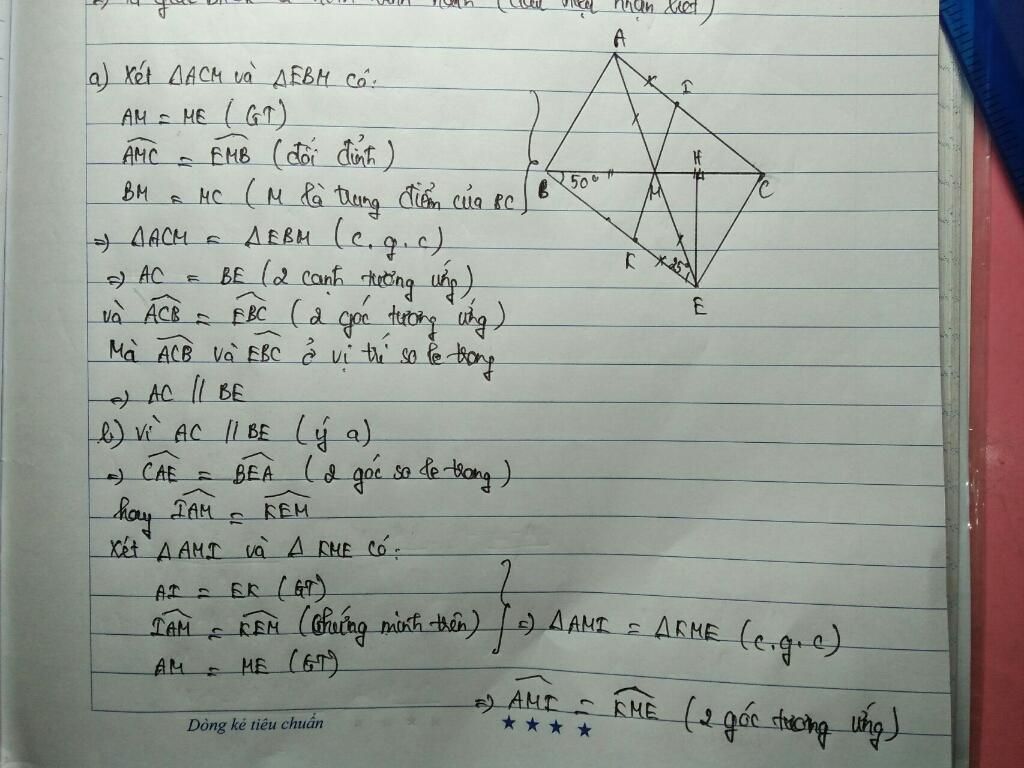 a) Xét ΔACM và ΔEBM có:
AM = ME (GT)
\widehat{AMC} = \widehat{EMB} (đối đỉnh)
BM = MC (M là trung điểm của BC
=> ΔACM = ΔEBM (c.g.c)
=> AC = BE (2 cạnh tương ứng)
và \widehat{ACB} = \widehat{EBC} (2 góc tương ứng)
Mà \widehat{ACB} và \widehat{EBC} ở vị trí so le trong
=> AC // BE
b) Vì AC // BE (ý a)
=> \widehat{CAE} = \widehat{BEA} (2 góc so le trong)
hay \widehat{IAM} = \widehat{KEM}
Xét ΔAMI và ΔKME có:
AI = EK (GT)
\widehat{IAM} = \widehat{KEM} (chứng minh trên) => ΔAMI = ΔKME (c.g.c)
AM = ME (GT)
=> \widehat{AMI} = \widehat{KME} (2 góc tương ứng)
Dòng kẻ tiêu chuẩn
A
I
B
50°
M
H
C
K
25°
E